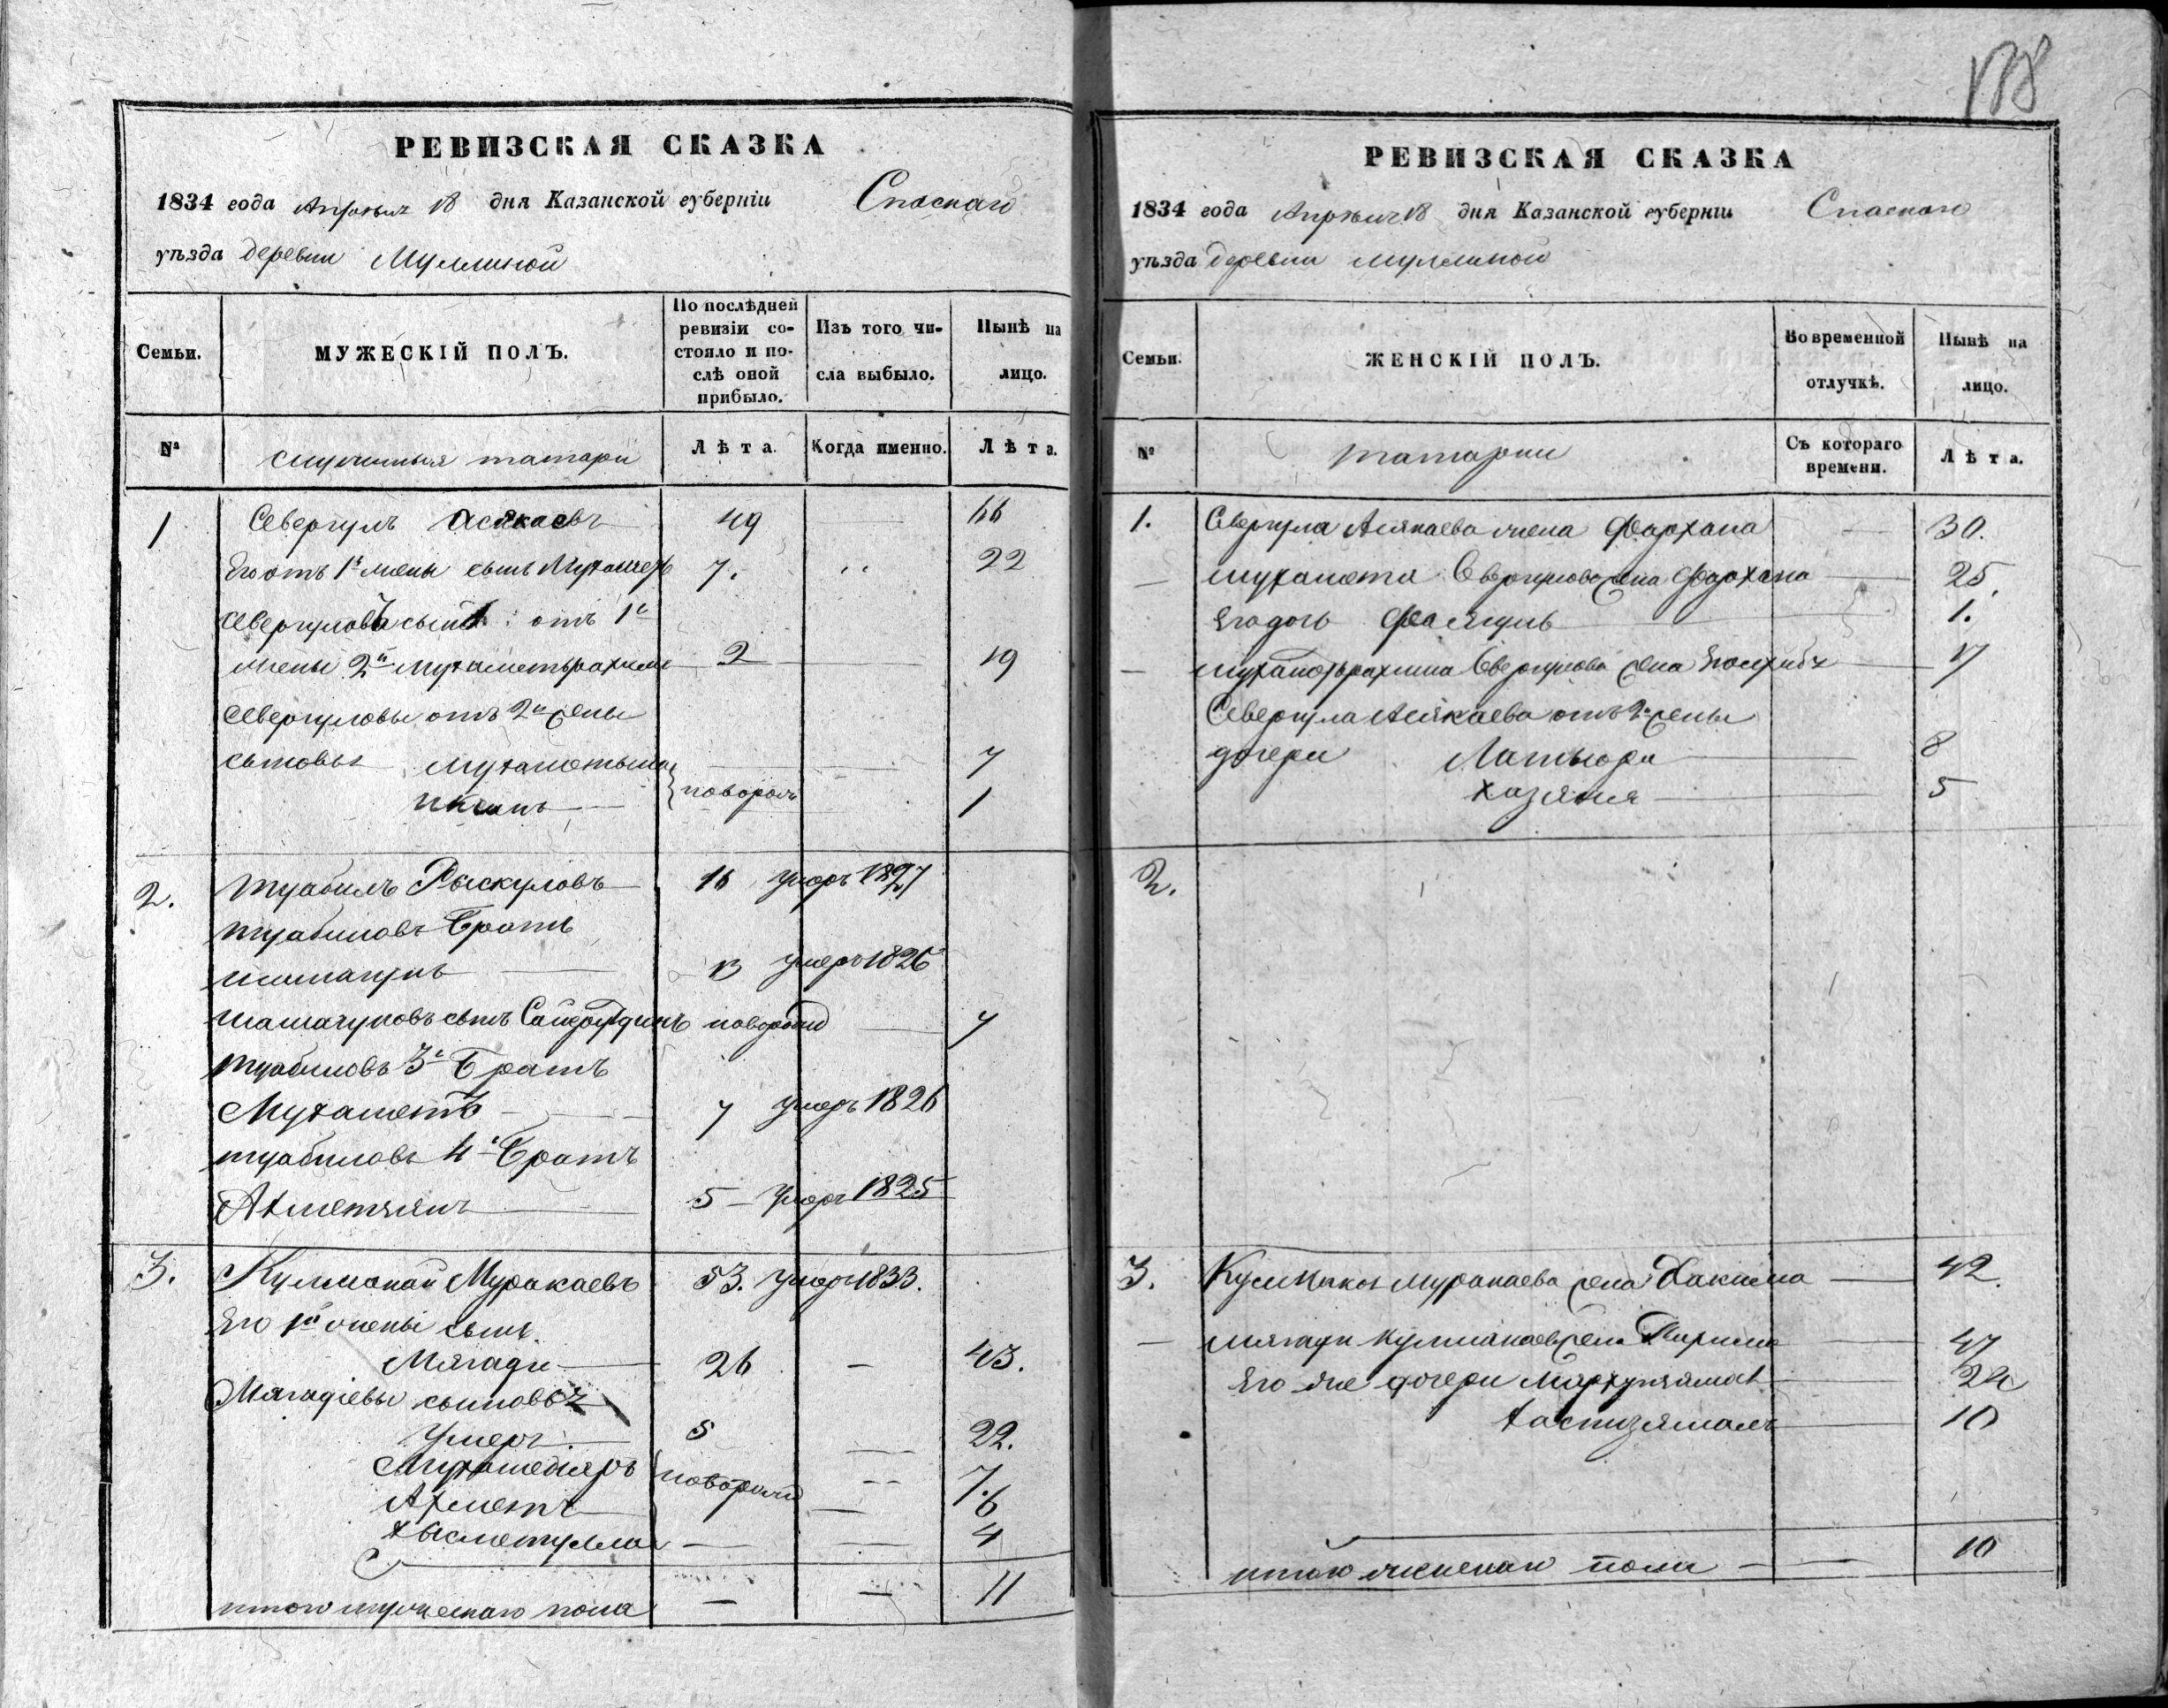 188
РЕВИЗСКАЯ СКАЗКА
1834 года Апреля 18 дня Казанской губерніи Спаскаго
уѣзда деревни Муллиной
Семьи.
МУЖЕСКІЙ ПОЛЪ.
По послѣдней ревизіи состояло и послѣ оной прибыло.
Изъ того числа выбыло.
Нынѣ на лицо.
№
татары
Лѣта.
Когда именно.
Лѣта.
1 Севергулъ Асякаевъ 49 66
Его отъ 1й жены сынъ Мухаметъ 7. 22
Севергуловъ сынъ отъ 1й
жены 2й Мухаметьрахимъ 2 19
Севергуловы от 2й жены
сыновья 7
новорож 1
2. Туабилъ Рыскуловъ 16 умеръ 1827
Туабиловъ братъ
13 умеръ 1826
сынъ Сайфутдинъ новорож 7
Туабиловъ 3й братъ
Мухаметъ 7 умеръ 1826
Туабиловъ 4й братъ
Ахметзянъ 5 умеръ 1825
3. Кулманай Муракаевъ 53. умеръ 1833.
Его 1й жены сынъ.
Мягади 26 43.
Мягадіевы сыновья
Умеръ 5 22.
Мухамедиаръ новорож 7.
Ахметъ 6
Хысметулла 4
итого мужескаго пола 11
РЕВИЗСКАЯ СКАЗКА
1834 года Апреля 18 дня Казанской губерніи Спаскаго
уѣзда деревни Муллиной
Семьи.
ЖЕНСКІЙ ПОЛЪ.
Во временной отлучкѣ.
Нынѣ на лицо.
№
татарки
Съ котораго времени.
Лѣта.
1. Севергула Асякаева жена Фархана 30.
Мухаметя Севергулова жена Фархана 25.
Его дочь 1.
Мухаметьрахима Севергулова жена 17
Севергула Асякаева от 2й жены
дочери 8
Хазяния 5
2.
3. Кулманая Муракаева жена Хакима 42.
Мягади Кулманаев жена 47
Его же дочери 22
10
итого женскаго пола 10